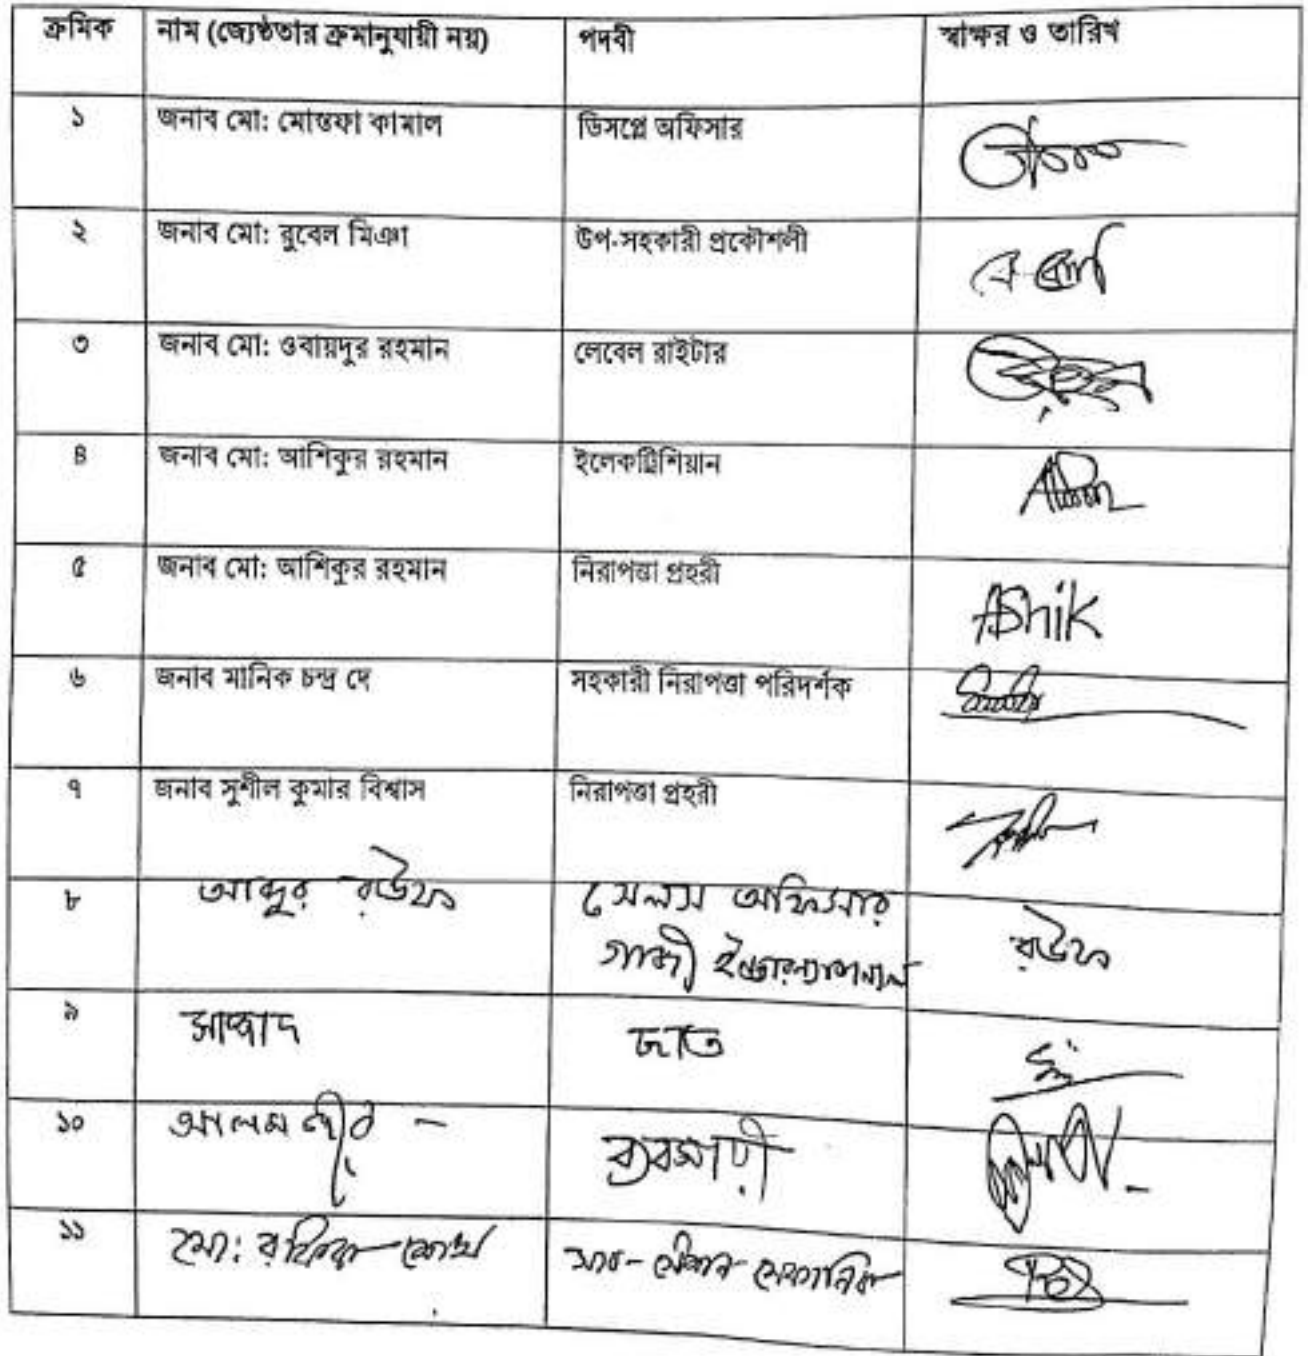 ক্রমিক নাম (জ্যেষ্ঠতার ক্রমানুযায়ী নয়) পদবী স্বাক্ষর ও তারিখ
১ জনাব মো: মোস্তফা কামাল ডিসপ্লে অফিসার
২ জনাব মো: রুবেল মিঞা উপ-সহকারী প্রকৌশলী
৩ জনাব মো: ওবায়দুর রহমান লেবেল রাইটার
৪ জনাব মো: আশিকুর রহমান ইলেকট্রিশিয়ান
৫ জনাব মো: আশিকুর রহমান নিরাপত্তা প্রহরী Ashik
৬ জনাব মানিক চন্দ্র দে সহকারী নিরাপত্তা পরিদর্শক
৭ জনাব সুশীল কুমার বিশ্বাস নিরাপত্তা প্রহরী
৮ আব্দুর রউফ সেলস অফিসার রউফ
গাজী ইন্টারন্যাশনাল
৯ সাজ্জাদ
১০ আলমগীর - ব্যবসায়ী
১১ মো: রফিক শেখ সাব-স্টেশন মেকানিক